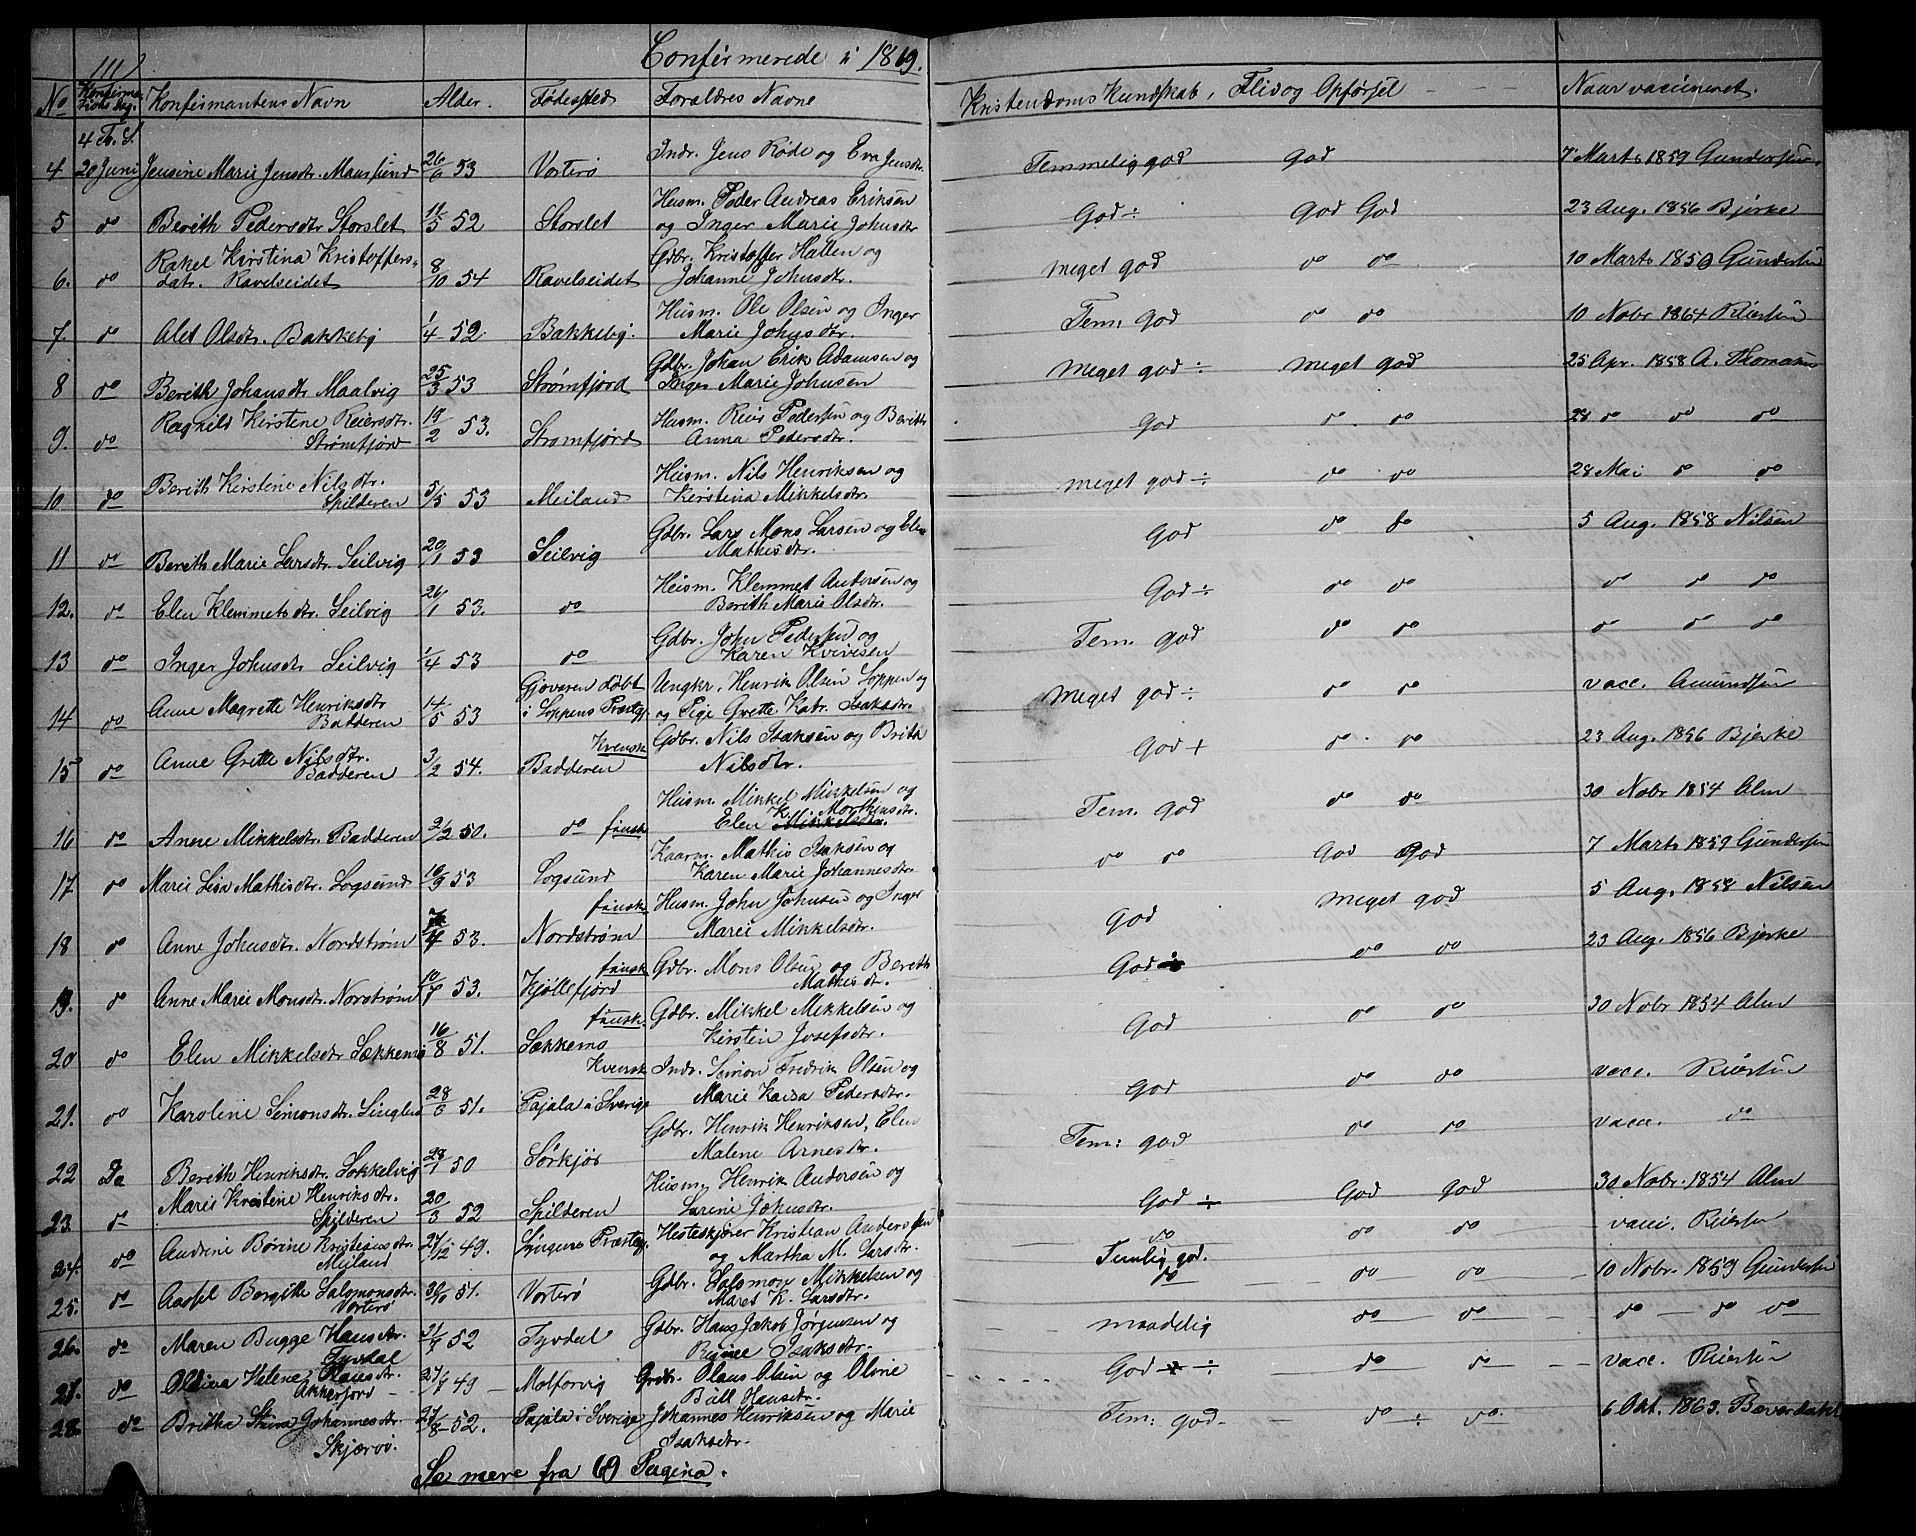 111
Confirmerede i 1869.
No Konfirmations dag. Konfirmantens Navn Alder. Fødested Forældres Navne Kristendoms Kundskab, Flid og Opførsel Naar vaccineret.
4 T. S.
4 20 Juni Jensine Marie Jensdtr. 53 Vorterø Indr. Jens Røde og Eva Jensdtr. Temmelig god God 7 Marts 1859 Gundersen
5 do Bereth Pedersdtr Storslet 11/5 52 Storslet Husm. Peder Andreas Eriksen og Inger Marie Johnsdtr God ÷ God God 23 Aug. 1856 Bjerke
6. do Rakel Kirstina Kristoffers-
datr. Ravelseidet 8/10 54 Ravelseidet Gdbr. Kristoffer Hallen og Johanne Johnsdtr. meget god do do 10 Marts 1859 Gundersen
7. do Alet Olsdtr. Bakkeby 1/4 52. Bakkeby. Husm. Ole Olsen og Inger Marie Johnsdtr. Tem: god do do 10 Nobr 1864 Riersen
8 do Bereth Johansdtr Maalvig 25/3 53 Strømfjord Gdbr. Johan Erik Adamsen og Inger Marie Johnsen meget god ÷ meget god 25 Apr. 1858 A. Thomasen
9. do Ragnild Kirstene Reiersdtr.
Strømfjord 19/2 53. Strømfjord Husm. Reier Pedersen og Berith Anna Pedersdtr. God do do 28 do do do
10 do Berith Kirstine Nilsdtr.
Spilderen 5/5 53 Meiland Husm. Nils Henriksen og Kirstina Mikkelsdtr. meget god ÷ do do 28 Mai do do
11 do Bereth Marie Larsdtr. Seilvig 20/1 53 Seilvig Gdbr. Lars Mons Larsen og Elen Mathisdtr. God do do 5 Aug. 1858 Nilsen
12. do Elen Klemmetsdtr. Seilvig 26/1 53. do Husm. Klemmet Andersen og Berith Marie Olsdtr. God ÷ do do do do do
13 do Inger Johnsdtr Seilvig 1/4 53 do Gdbr. John Pedersen og Karen Kvivesen Tem. god do do do do do
14 do Anne Magrette Henriksdtr
Badderen 14/5 53 Gjøvaren døbt i Loppens Præstgj. Ungkr. Henrik Olsen Loppen og og Pige Grette Katr. Isaksdtr. meget god ÷ do do vacc. Amundsen
15 do Anne Grette Nilsdtr.
Badderen 3/2 54. Kvensk Badderen Gdbr. Nils Isaksen og Brith Nilsdtr. God + do do 23 Aug. 1856 Bjerke
16 do Anne Mikkelsdtr. Badderen 3/2 50. do finsk Husm. Mikkel Mikkelsen og Elen K. Morthensdtr. Mikkelsdtr. Tem. god do do 30 Nobr 1854 Alm
17 do Marie Lisa Mathisdtr. Logsund 16/9 53 Logsund Kaarm. Mathis Isaksen og Karen Marie Johannesdtr. do do God God 7 Marts 1859 Gundersen
18 do Anne Johnsdtr. Nordstrøm 53. finsk Nordstrøm Husm. John Johnsen og Inger Marie Mikkelsdtr. God meget god 5 Aug. 1858 Nilsen
19. do Anne Marie Monsdtr. Norstrøm 10/7 53. finsk Kjøllefjord Gdbr. Mons Olsen og Bereth Mathisdtr. God ÷ do do 23 Aug. 1856 Bjerke
20 do Elen Mikkelsdtr Sækkemo 16/8 51. finsk Sækkemo Gdbr. Mikkel Mikkelsen og Kirsten Josefsdtr. God do do 30 Nobr 1854 Alm
21. do Karoline Simonsdtr. 51. Kvensk Pajala i Sverige Indr. Simon Fredrik Olsen og Marie Kaisa Pedersdtr. God do do vacc. Riersen
22 Do Bereth Henriksdtr. Sokkelvig 28/1 50 Sørkjos Gdbr. Henrik Henriksen, Elen Malene Arnesdtr. Tem: god do do vacc. do
23. do Marie Kristine Henriksdtr.
Spilderen 20/3 52 Spilderen Husm. Henrik Andersen og Larine Johnsdtr. God ÷ God God 30 Nobr. 1854 Alm
24. do Andrine Børine Kristiansdtr
Meiland 27/12 49. Lyngens Præsteg. Hesteskjører Kristian Anderssen og Martha M. Larsdtr. do Temlig god. do do vacc. Riersen
25. do Aasel Bergitte Salomonsdtr.
Vorterø 51. Vorterø Gdbr. Salomon Mikkelsen og Maret K. Larsdtr. do do do 10 Nobr. 1859 Gundersen
26. do Maren Bugge Hansdtr.
Tyvdal 52 Tyvdal Gdbr. Hans Jakob Jørgensen og Regine Isaksdtr. maadelig do do do do do
27. do Oldina Helene Olausdtr.
Akkerfjord 49 Molforvig Grdbr. Olaus Olsen og Oline Bull Hansdtr. God ÷ do do vacc. Riersen
28. do Britha Johannesdtr.
Skjærvø. 27/8 52. Pajala i Sverige Johannes Henriksen og Marie Isaksdtr. Tem: god do ÷ do 6 Okt. 1863. Bæverdahl
Se mere fra 69 Pagina.